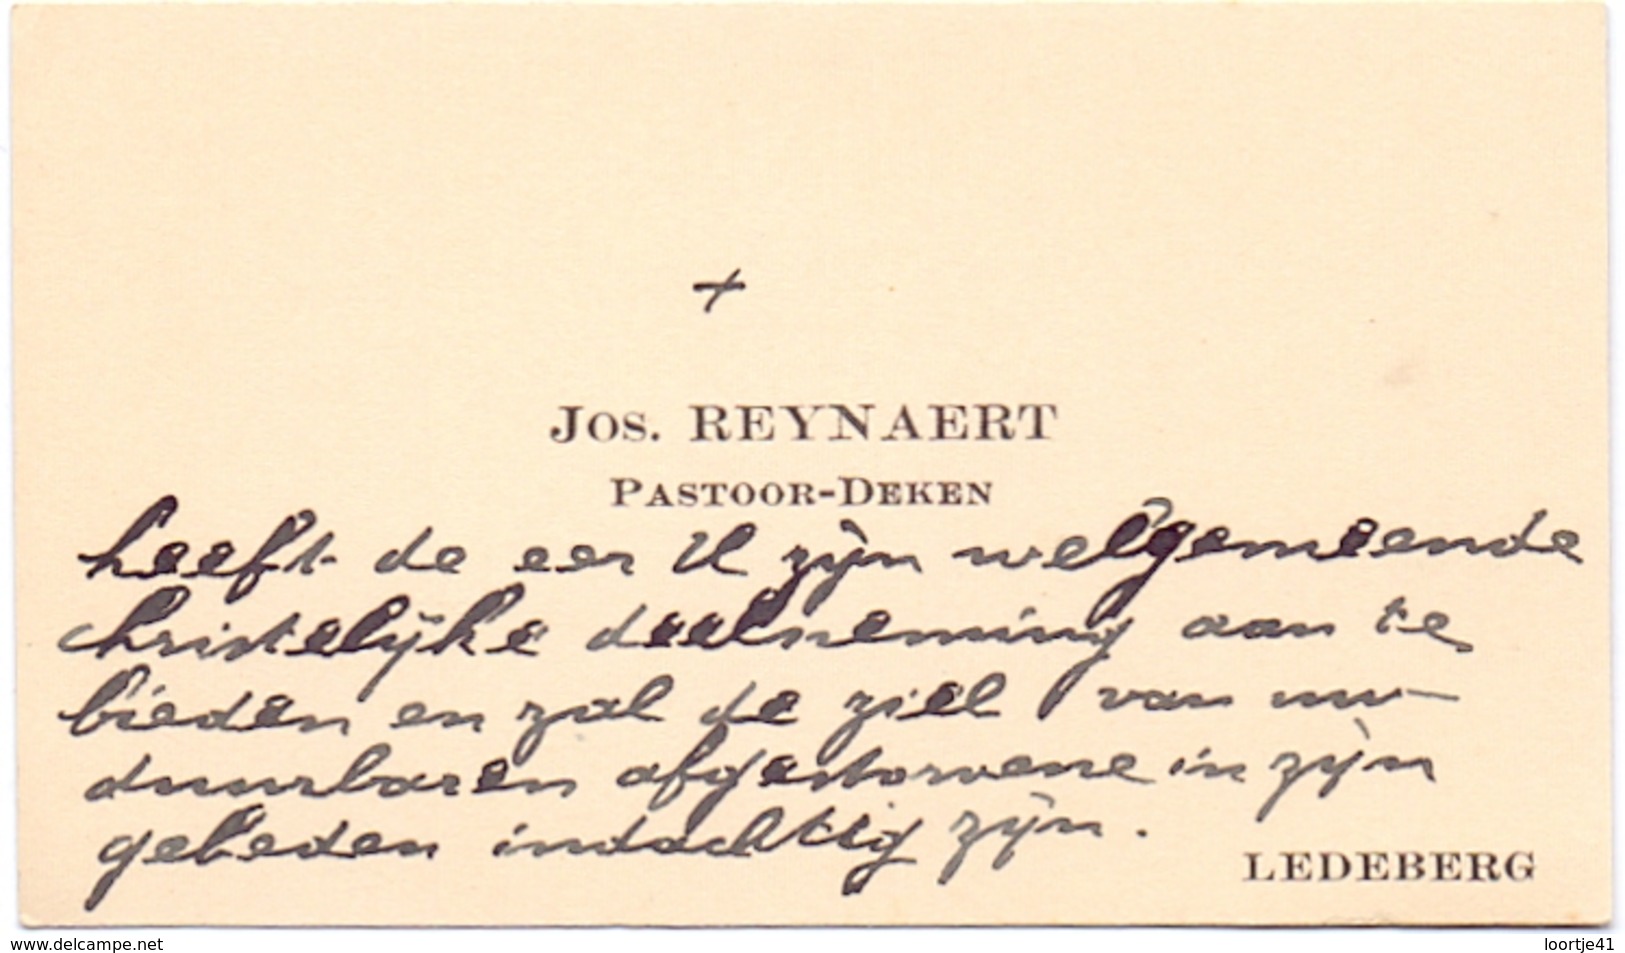 +
Jos. REYNAERT
PASTOOR-DEKEN
heeft de eer U zijn welgemeende
christelijke deelneming aan te
bieden en zal de ziel van uw
duurbaren afgestorvene in zijn
gebeden indachtig zijn.
LEDEBERG
www.delcampe.net
loortje41